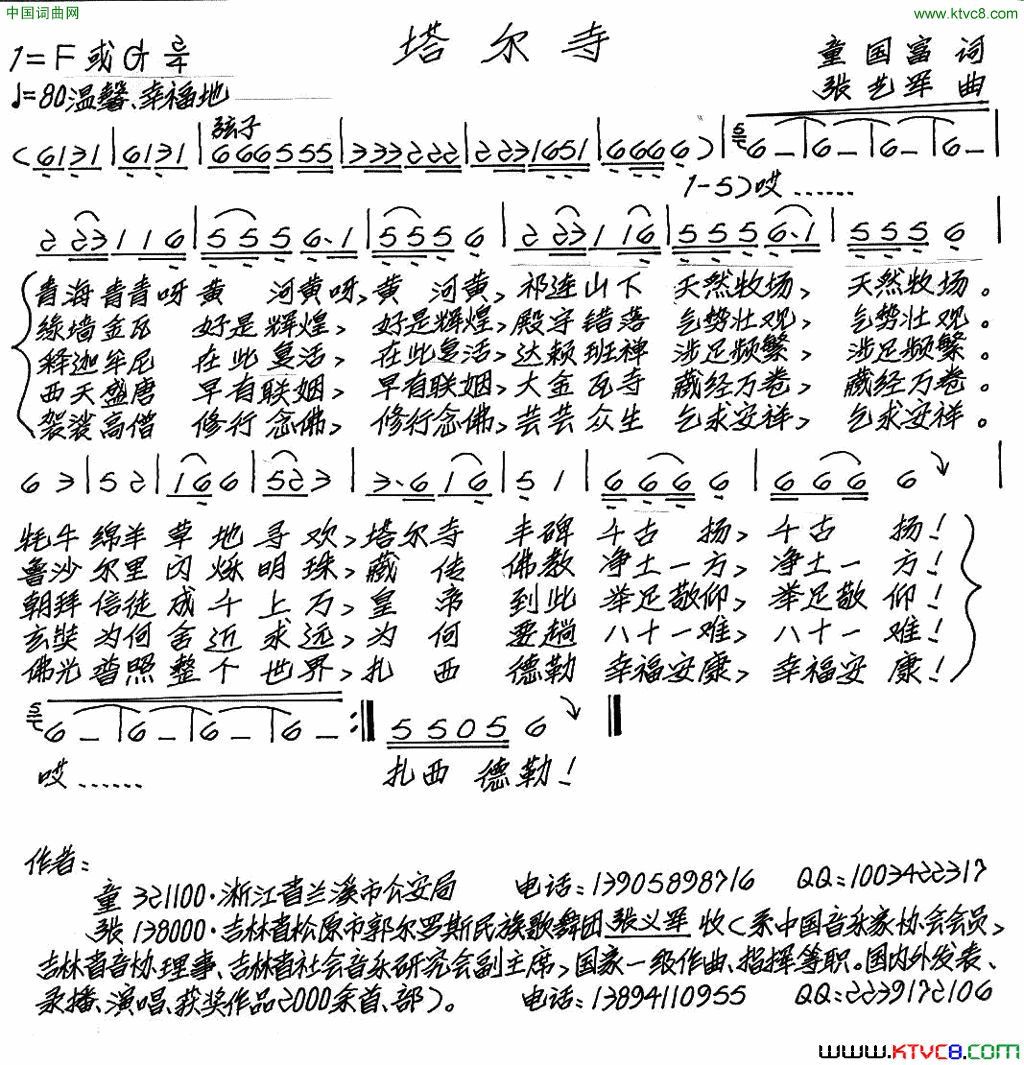 中国词曲网 www.ktvc8.com
塔尔寺
1=F或G 2/4 童国富 词
♩=80 温馨、幸福地 张艺军 曲
弦子
(6131|6131|666555|333222|2231651|6666)|6–|6–|6–|6–|
1-5)哎……
223116|5556·1|5556|223116|5556·1|5556|
青海青青呀黄 河黄呀,黄 河黄,祁连山下 天然牧场, 天然牧场。
绿墙金瓦 好是辉煌, 好是辉煌,殿宇错落 气势壮观, 气势壮观。
释迦牟尼 在此复活, 在此复活,达赖班禅 涉足频繁, 涉足频繁。
西天盛唐 早有联姻, 早有联姻,大金瓦寺 藏经万卷, 藏经万卷。
袈裟高僧 修行念佛, 修行念佛,芸芸众生 乞求安祥, 乞求安祥。
63|52|166|523|3·616|51|6666|6666|
牦牛绵羊草地寻欢,塔尔寺 丰碑 千古 扬,千古 扬!
鲁沙尔里闪烁明珠,藏 传 佛教 净土一方,净土一方!
朝拜信徒成千上万,皇 帝 到此 举足敬仰,举足敬仰!
玄奘为何舍近求远,为 何 要趟 八十一难,八十一难!
佛光普照整个世界,扎 西 德勒 幸福安康,幸福安康!
6–|6–|6–|6–:‖55056‖
哎…… 扎西 德勒!
作者:
童 321100·浙江省兰溪市公安局 电话:13905898716 QQ:1003422317
张 138000·吉林省松原市郭尔罗斯民族歌舞团张义军 收(系中国音乐家协会会员,
吉林省音协理事、吉林省社会音乐研究会副主席,国家一级作曲、指挥等职。国内外发表、
录播、演唱、获奖作品2000余首、部)。 电话:13894110955 QQ:2239172106
www.KTVC8.com